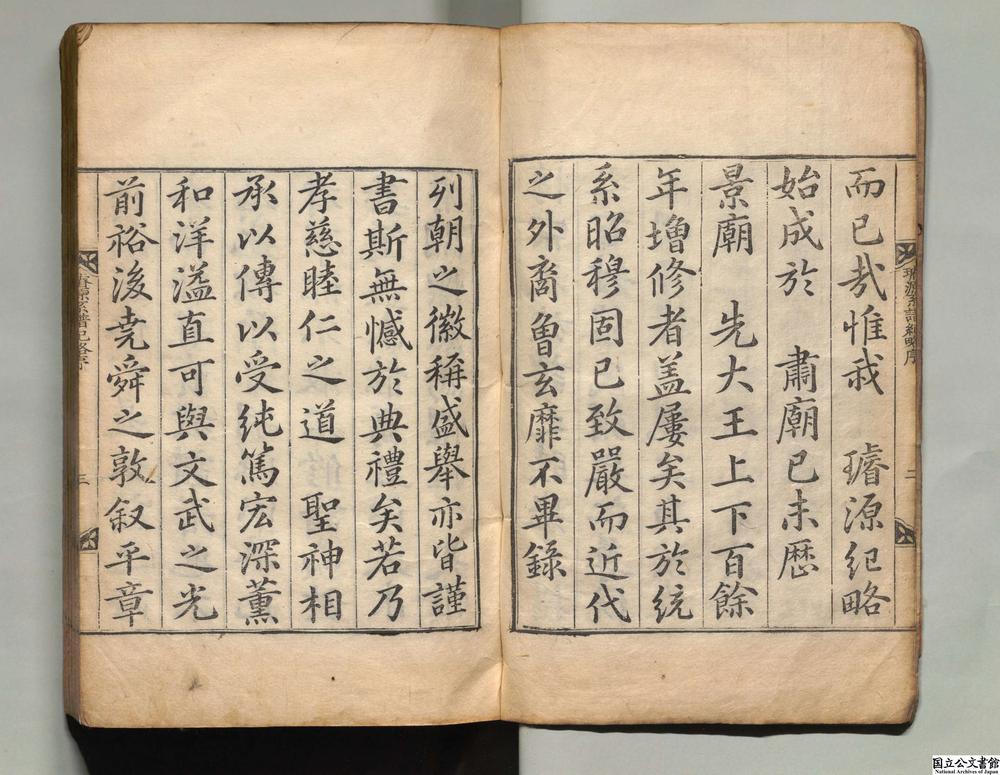 而已哉惟我　璿源紀略
始成於　肅廟己未歷
景廟　先大王上下百餘
年增修者盖屢矣其於統
系昭穆固已致嚴而近代
之外裔曾玄靡不畢錄
列朝之徽稱盛舉亦皆謹
書斯無憾於典禮矣若乃
孝慈睦仁之道　聖神相
承以傳以受純篤宏深薰
和洋溢直可與文武之光
前裕後堯舜之敦叙平章
璿源系譜紀略序
二
璿源系譜紀略序
三
国立公文書館
National Archives of Japan